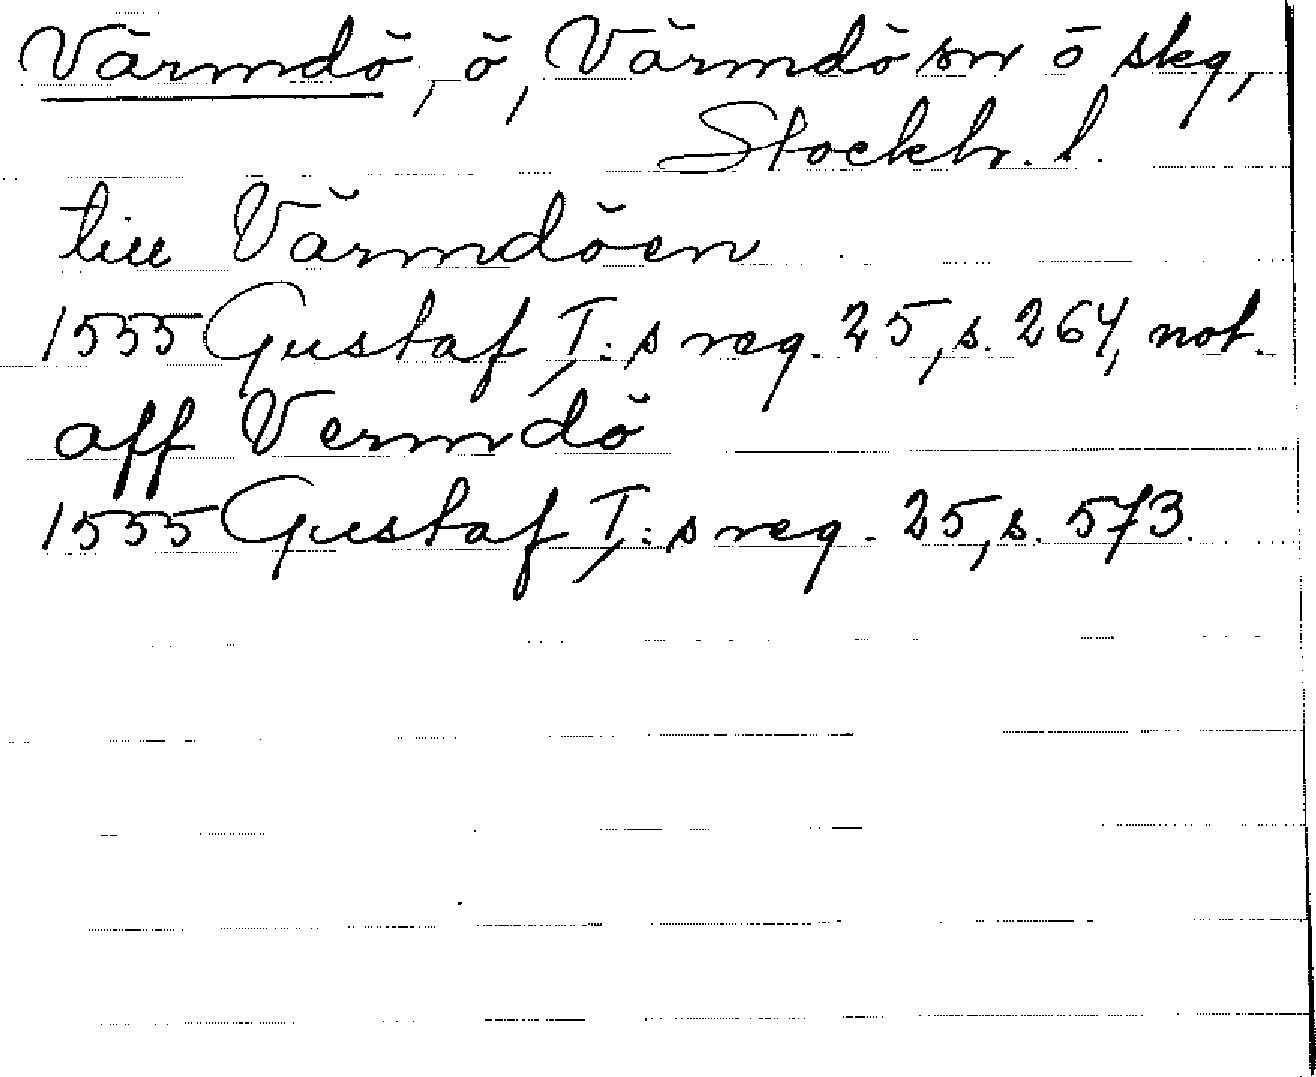 Värmdö, ö, Värmdö sn ö skg,
Stockh. l.
till Värmdöen
1555 Gustaf I:s reg. 25, s. 264, not.
aff Vermdö
1555 Gustaf I:s reg. 25, s. 573.